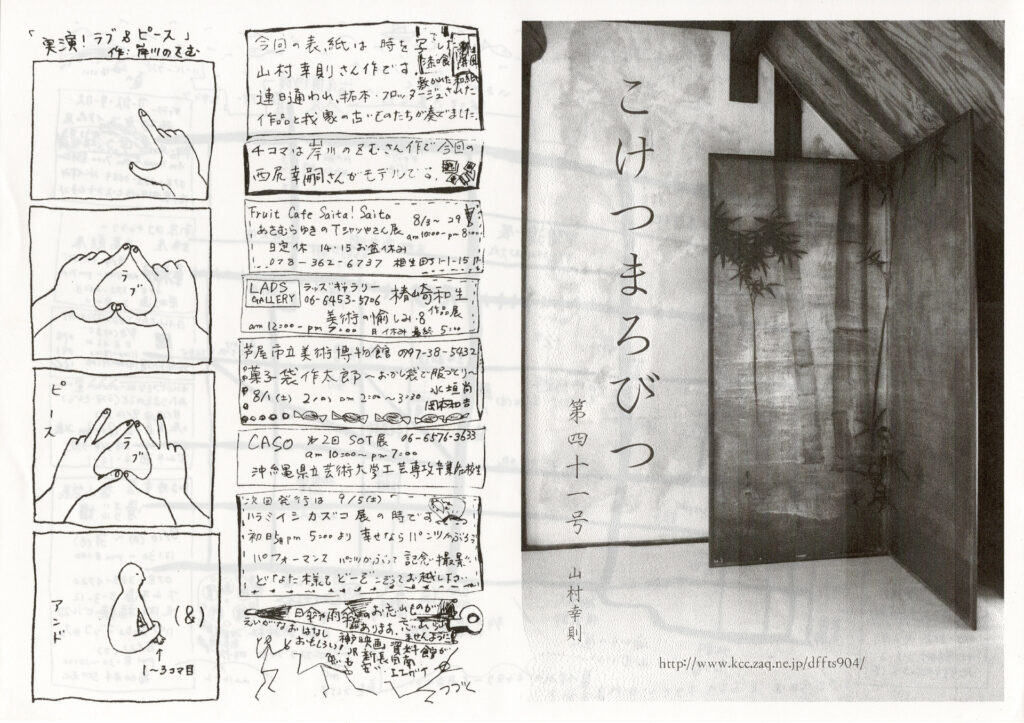 「実演!ラブ&ピース」
作:岸川のぞむ
ラブ
ピース
ラブ
アンド
(&)
1~3コマ目
今回の表紙は時を写した
山村幸則さん作です。
連日通われ、拓本・フロッタージュされた
作品と我家の古いものたちが奏でました。
4コマは岸川のぞむさん作で今回の
西尻幸嗣さんがモデルです。
Fruit Cafe Saita! Saita 8/3~29
あさむらゆきのTシャツやさん展 am10:00-pm8:00
日定休 14・15お盆休み
078-362-6737 相生町5-1-15 1F
LADS GALLERY
ラッズギャラリー
06-6453-5706
椿崎和生
美術の愉しみ・8 作品展
am12:00-pm7:00 月休み 最終5:00
芦屋市立美術博物館 0797-38-5432
菓子袋作太郎~おかし袋で服づくり~
8/1(土) 2(日) am 2:00~3:30
水垣尚
岡本和吉
CASO 第2回 SOT展 06-6576-3633
am10:00~pm7:00
沖縄県立芸術大学工芸専攻卒業&在校生
次回発行は 9/5(土)
ハラミイシカズコ展の時です
初日5日pm5:00より 幸せならパンツかぶろう
パフォーマンス パンツかぶって記念撮影
どなた様もどーぞこぞってお越し下さい
日傘や雨傘のお忘れものが
あります。
えいがなおはなし
とおもしろい!
神戸映画資料館が
JR新長田南
つづく
こけつまろびつ
第四十一号
山村幸則
http://www.kcc.zaq.ne.jp/dffts904/